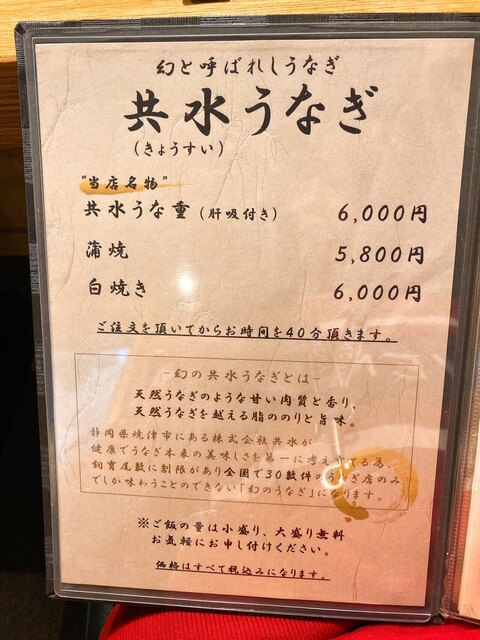 幻と呼ばれしうなぎ
共水うなぎ
(きょうすい)
"当店名物"
共水うな重(肝吸付き) 6,000円
蒲焼 5,800円
白焼き 6,000円
ご注文を頂いてからお時間を40分頂きます。
-幻の共水うなぎとは-
天然うなぎのような甘い肉質と香り、
天然うなぎを越える脂ののりと旨味。
静岡県焼津市にある株式会社共水が
健康でうなぎ本来の美味しさを第一に考え育てる為、
飼育尾数に制限があり全国で30数件のうなぎ店のみ
でしか味わうことのできない「幻のうなぎ」になります。
※ご飯の量は小盛り、大盛り無料
お気軽にお申し付けください。
価格はすべて税込みになります。